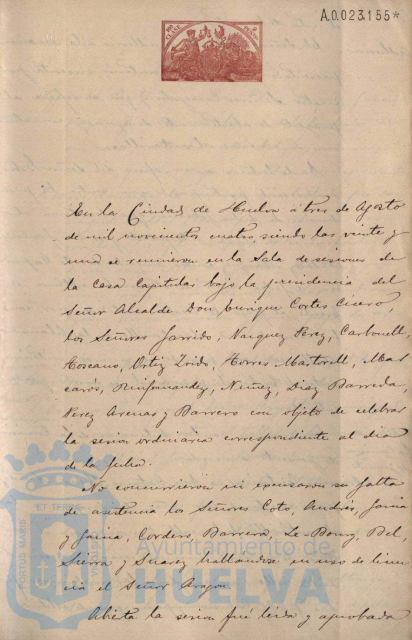 A.0.023.155*
En la Ciudad de Huelva á tres de Agosto
de mil novecientos cuatro, siendo las veinte y
una se reunieron en la Sala de sesiones de
la Casa Capitular bajo la presidencia del
Señor Alcalde Don Enrique Cortes Cisero,
los Señores Garrido, Vazquez Perez, Carbonell,
Toscano, Ortiz, Torres Martorell, Mas
Rinfernandez, Nuñez, Diaz Barreda,
Perez Arenas y Barrero con objeto de celebrar
la sesion ordinaria correspondiente al dia
de la fecha.
No concurrieron ni excusaron su falta
de asistencia los Señores Coto, Andrés, Garcia
y Garcia, Cordero, Barrera, Le-Bourg, Del,
Sierra y Suarez hallandose en uso de licen
cia el Señor Aragon
Abierta la sesion fué leida y aprobada
PORTUS MARIS
ET TERRÆ
Ayuntamiento de
HUELVA